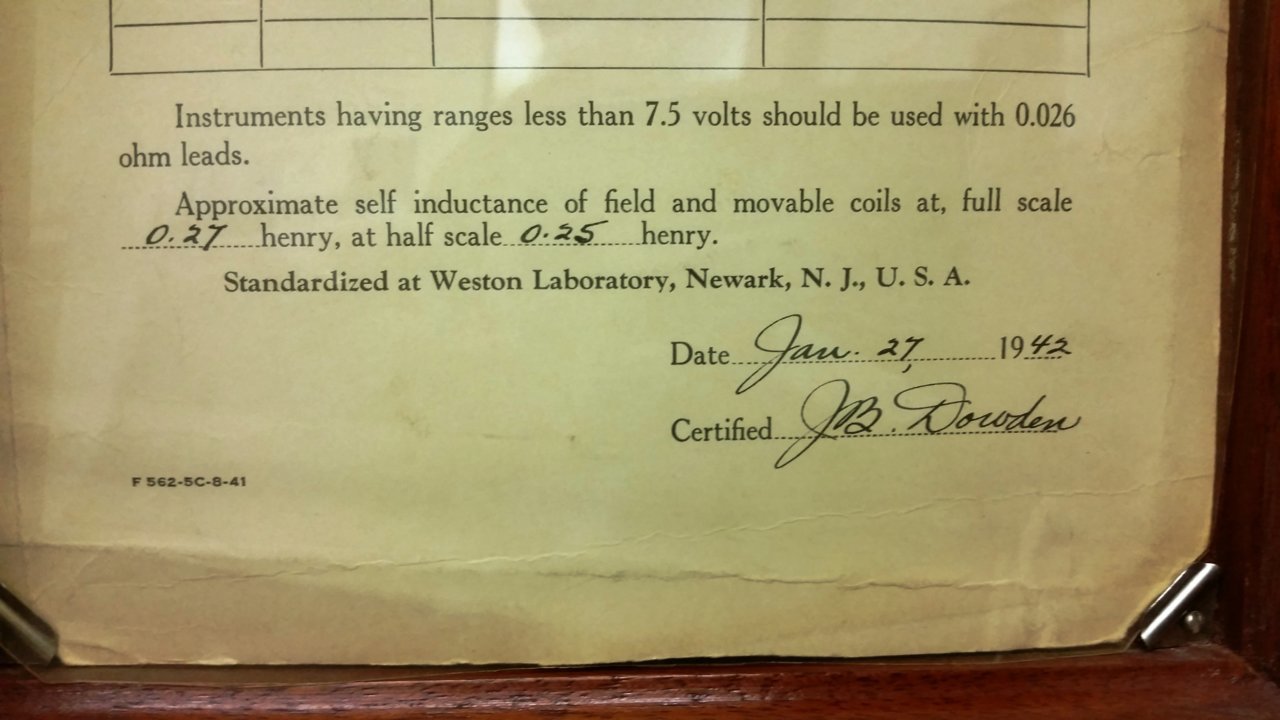 Instruments having ranges less than 7.5 volts should be used with 0.026
ohm leads.
Approximate self inductance of field and movable coils at, full scale
0.27 henry, at half scale 0.25 henry.
Standardized at Weston Laboratory, Newark, N. J., U. S. A.
Date Jan. 27, 1942
Certified J.B. Dowden
F 562-5C-8-41